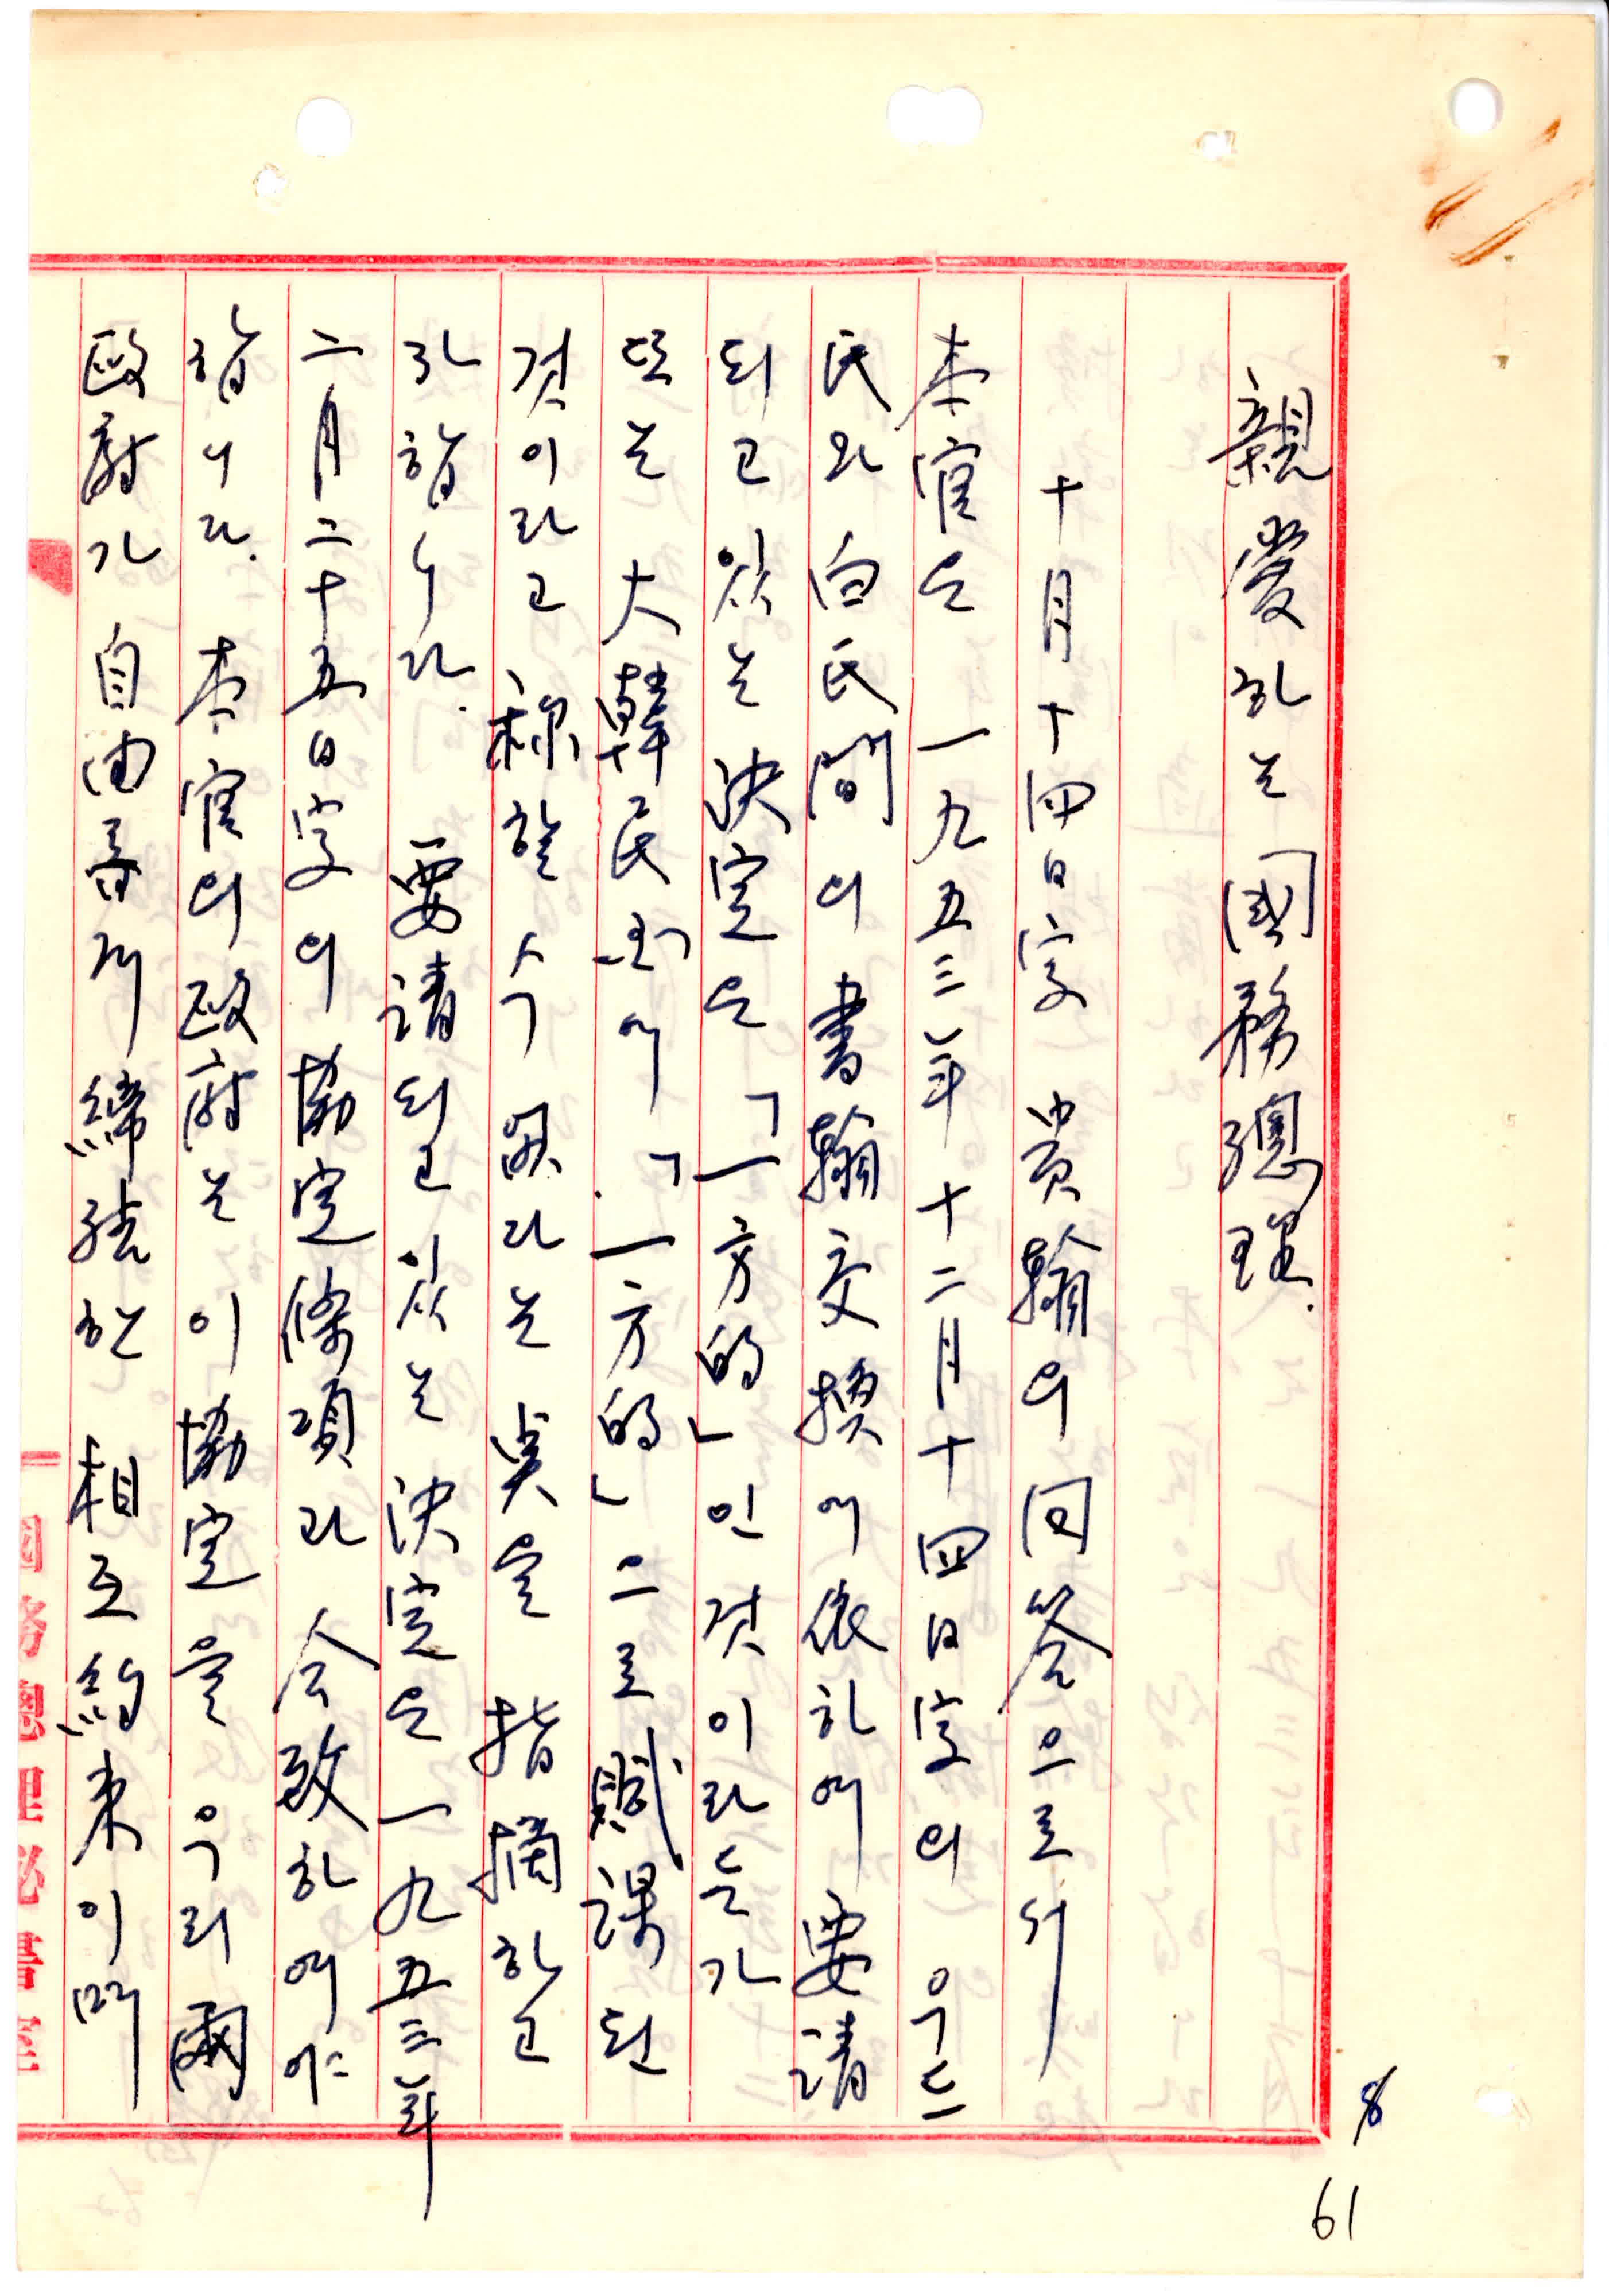 親愛하는 國務總理.
十月十四日字 貴翰의 回答으로서
本官은 一九五三年十二月十四日字의 우드
氏와 白氏間의 書翰交換에 依하여 要請
되고 있는 決定은 「一方的」인 것이라든가
또는 大韓民國에 「一方的」으로 賦課된
것이라고 稱할 수 없다는 点을 指摘하고
저 합니다. 要請되고 있는 決定은 一九五三年
二月二十五日字의 協定條項과 合致하여야
합니다. 本官의 政府는 이 協定을 우리 兩
政府가 自由意思로 締結한 相互約束이며
8
61